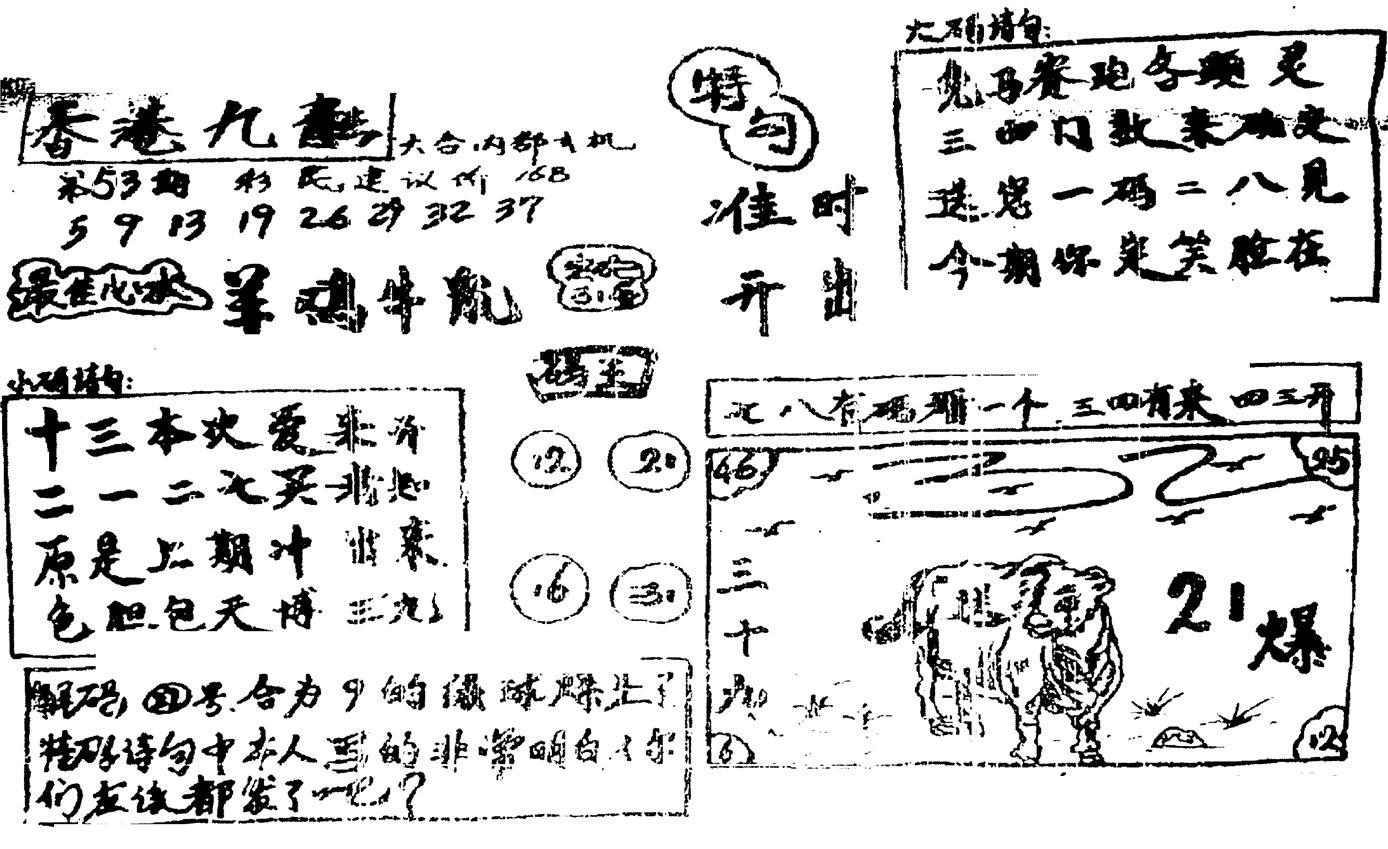 香港九龍
大合内部玄机
第53期 彩民建议价 168
5 9 13 19 26 29 32 37
最佳心水 羊鸡牛鼠
小码诗句:
十三本次爱
二一二七买
原是上期冲 出来
色胆包天博
解码: 21 号合为 9 的
特码诗句中本人写的非常明白
们应该都发了一吧?
码王
12 21
16 31
特句
准时
开出
大码诗句:
兔马赛跑各显灵
三四门数来确定
送您一码二八见
今期你定笑脸在
七八有码 一个 三四有来四三开
46 25
三十九
21 爆
6 12